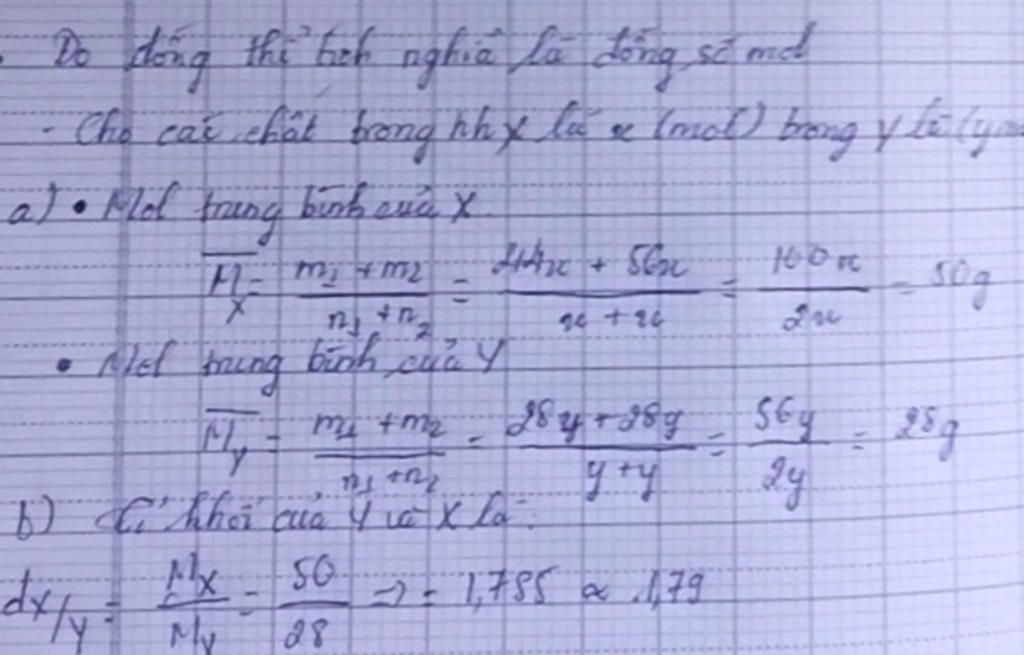 Do đồng thể tích nghĩa là đồng số mol
- Cho các chất trong hh X là x (mol) trong Y là (y
a) • Mol trung bình của X
M̅x = (m1 + m2)/(n1 + n2) = (44x + 56x)/(x + x) = 100x/2x = 50g
• Mol trung bình của Y
M̅y = (m1 + m2)/(n1 + n2) = (28y + 28y)/(y + y) = 56y/2y = 28g
b) Tỉ khối của Y và X là:
dx/y = Mx/My = 50/28 => = 1,785 ≈ 1,79